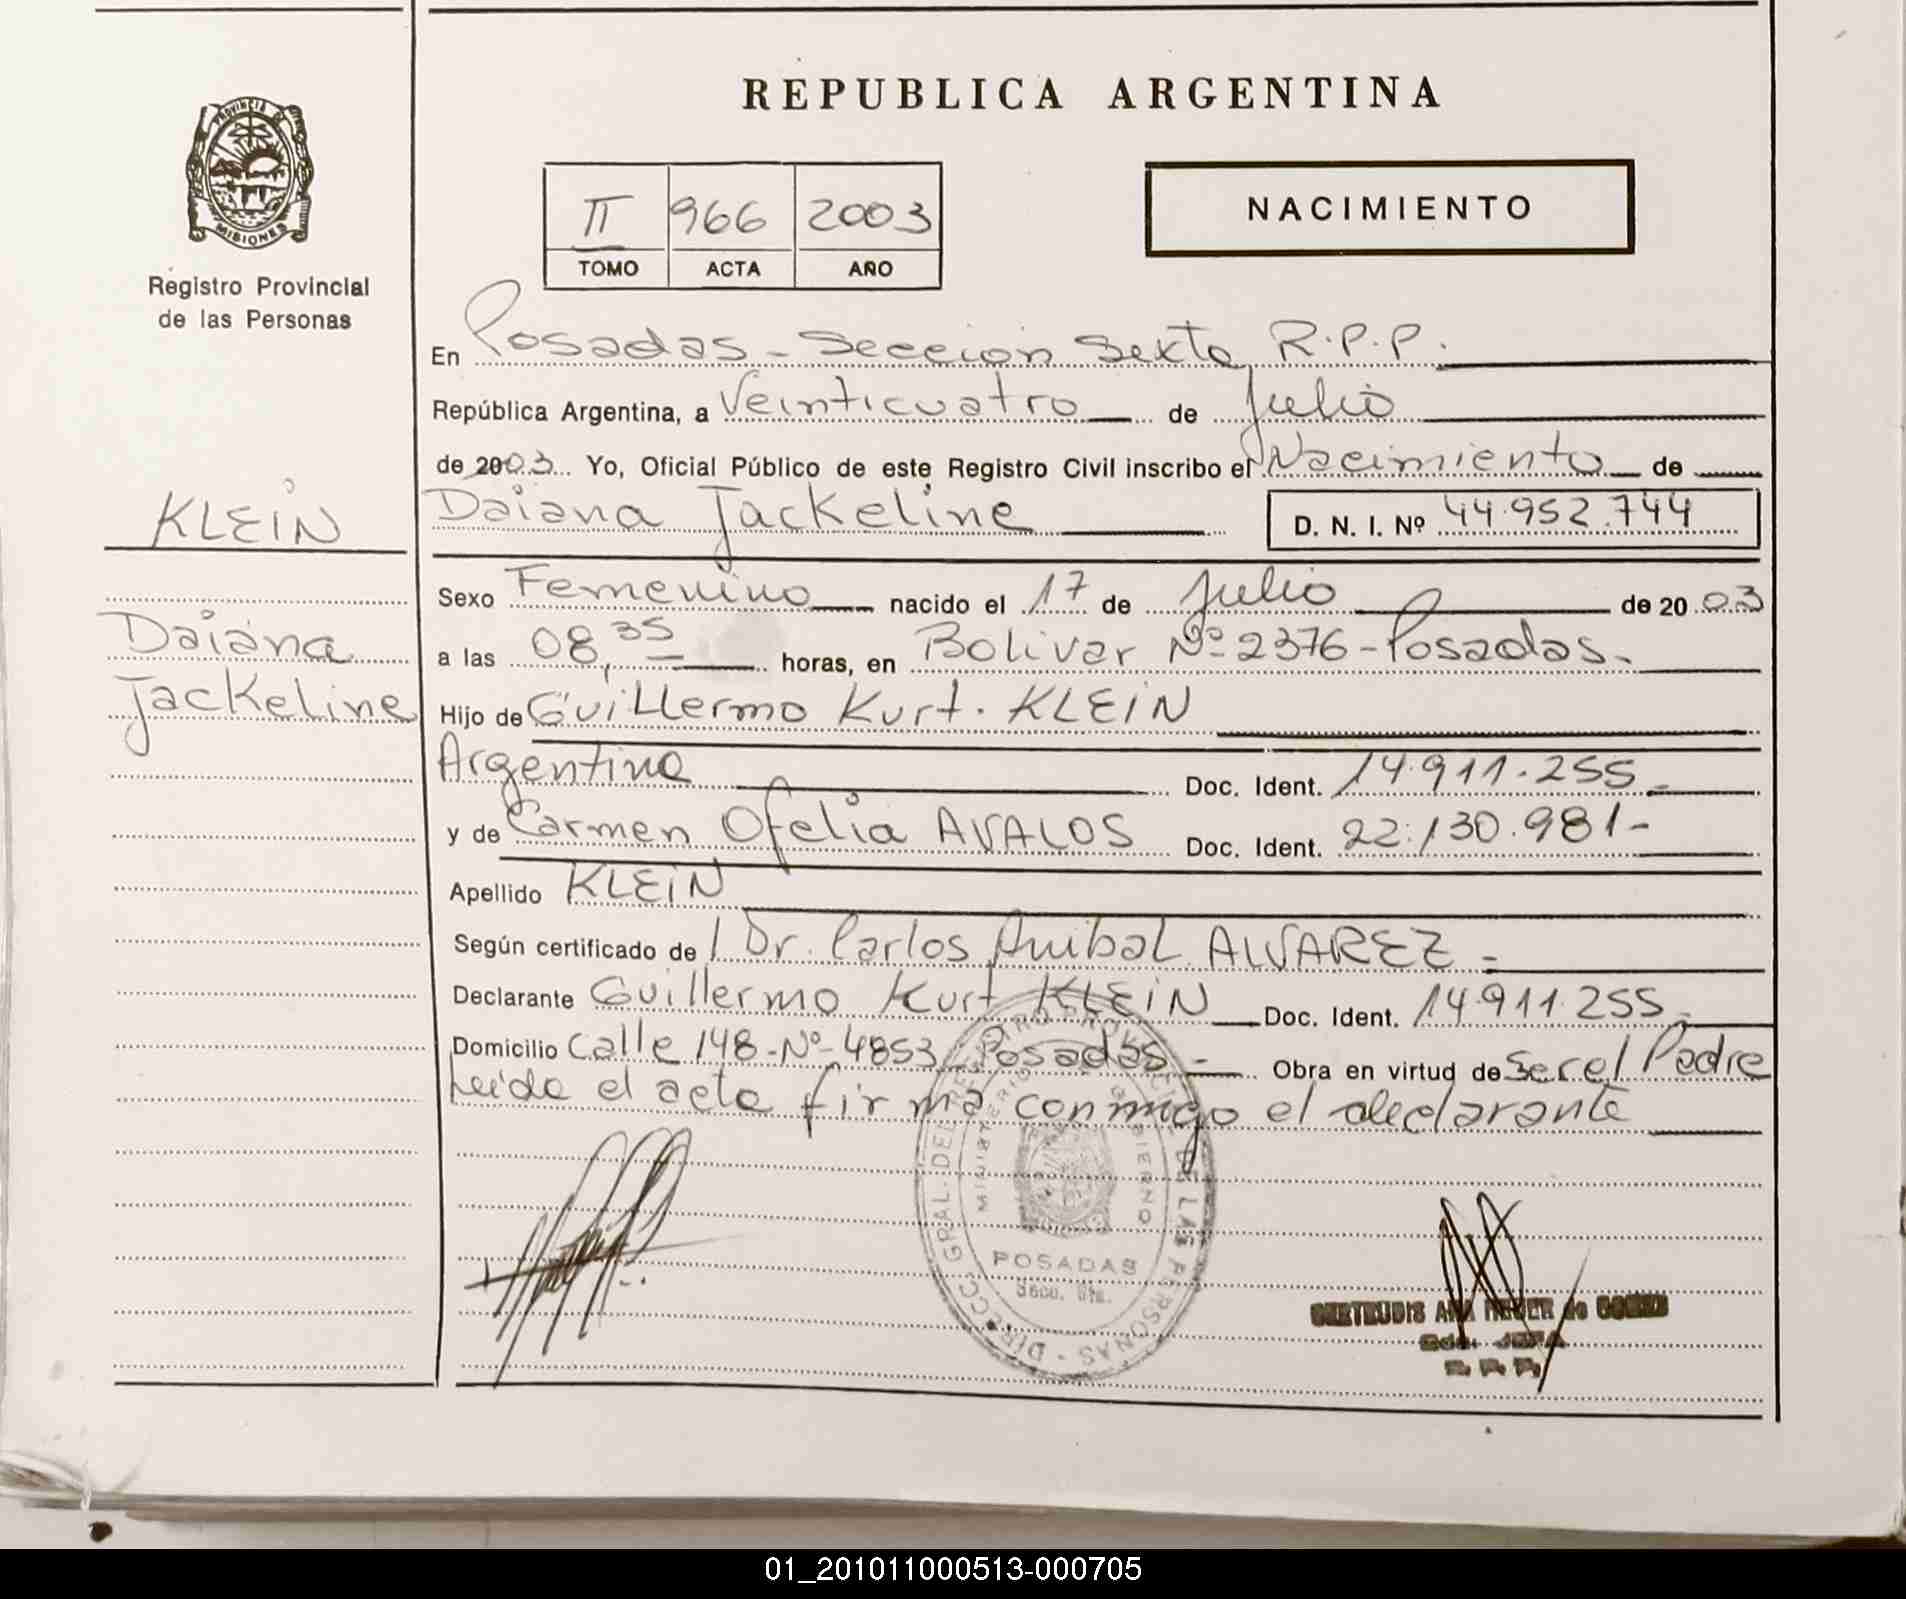 REPUBLICA ARGENTINA
PROVINCIA DE
MISIONES
Registro Provincial
de las Personas
II 966 2003
TOMO ACTA AÑO
NACIMIENTO
En Posadas - Seccion Sexta R.P.P.
República Argentina, a Veinticuatro de Julio
de 2003 Yo, Oficial Público de este Registro Civil inscribo el Nacimiento de
KLEIN
Daiana Jackeline D. N. I. Nº 44.952.744
Sexo Femenino nacido el 17 de Julio de 2003
Daiana
Jackeline
a las 08,35 horas, en Bolivar Nº 2376 - Posadas.
Hijo de Guillermo Kurt. KLEIN
Argentina Doc. Ident. 14.911.255
y de Carmen Ofelia AVALOS Doc. Ident. 22.130.981-
Apellido KLEIN
Según certificado de Dr. Carlos Anibal ALVAREZ -
Declarante Guillermo Kurt KLEIN Doc. Ident. 14.911.255
Domicilio Calle 148-Nº-4853 Posadas - Obra en virtud de Ser el Padre
Leida el acta firma conmigo el declarante
DIRECC GRAL. DEL REGISTRO PROVINCIAL DE LAS PERSONAS
MINISTERIO DE GOBIERNO
POSADAS
Secc. 6ta.
GERTRUDIS ANA de GOMEZ
JEFA
R. P. P.
01_201011000513-000705